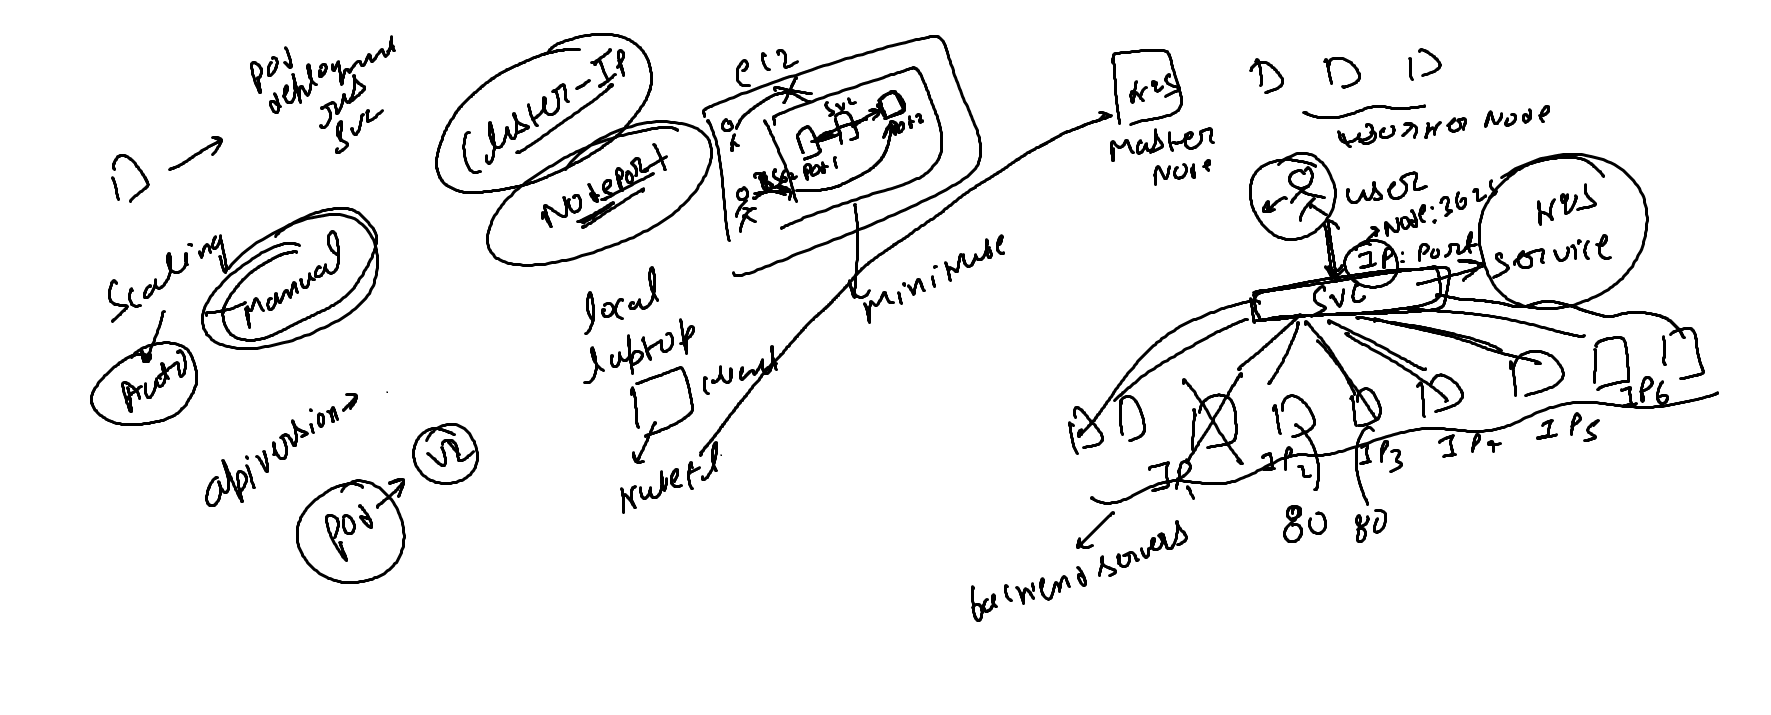 pod
deployment
rs
svc
Scaling
manual
Auto
apiversion
pod
v2
Cluster-IP
Nodeport
ec2
svc
pod1
pod2
minikube
local
laptop
client
kubectl
K8S
Master
Node
worker Node
user
Node:3625
IP: Port
SVC
K8S
service
IP1
IP2
IP3
IP4
IP5
IP6
80
80
backend servers